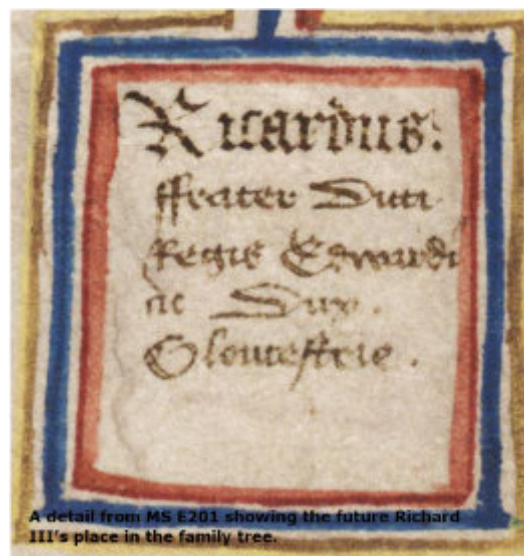 Ricardus:
ffrater Dicti
Regis Edwardi
ac Dux.
Gloucestrie.
A detail from MS E201 showing the future Richard
III's place in the family tree.